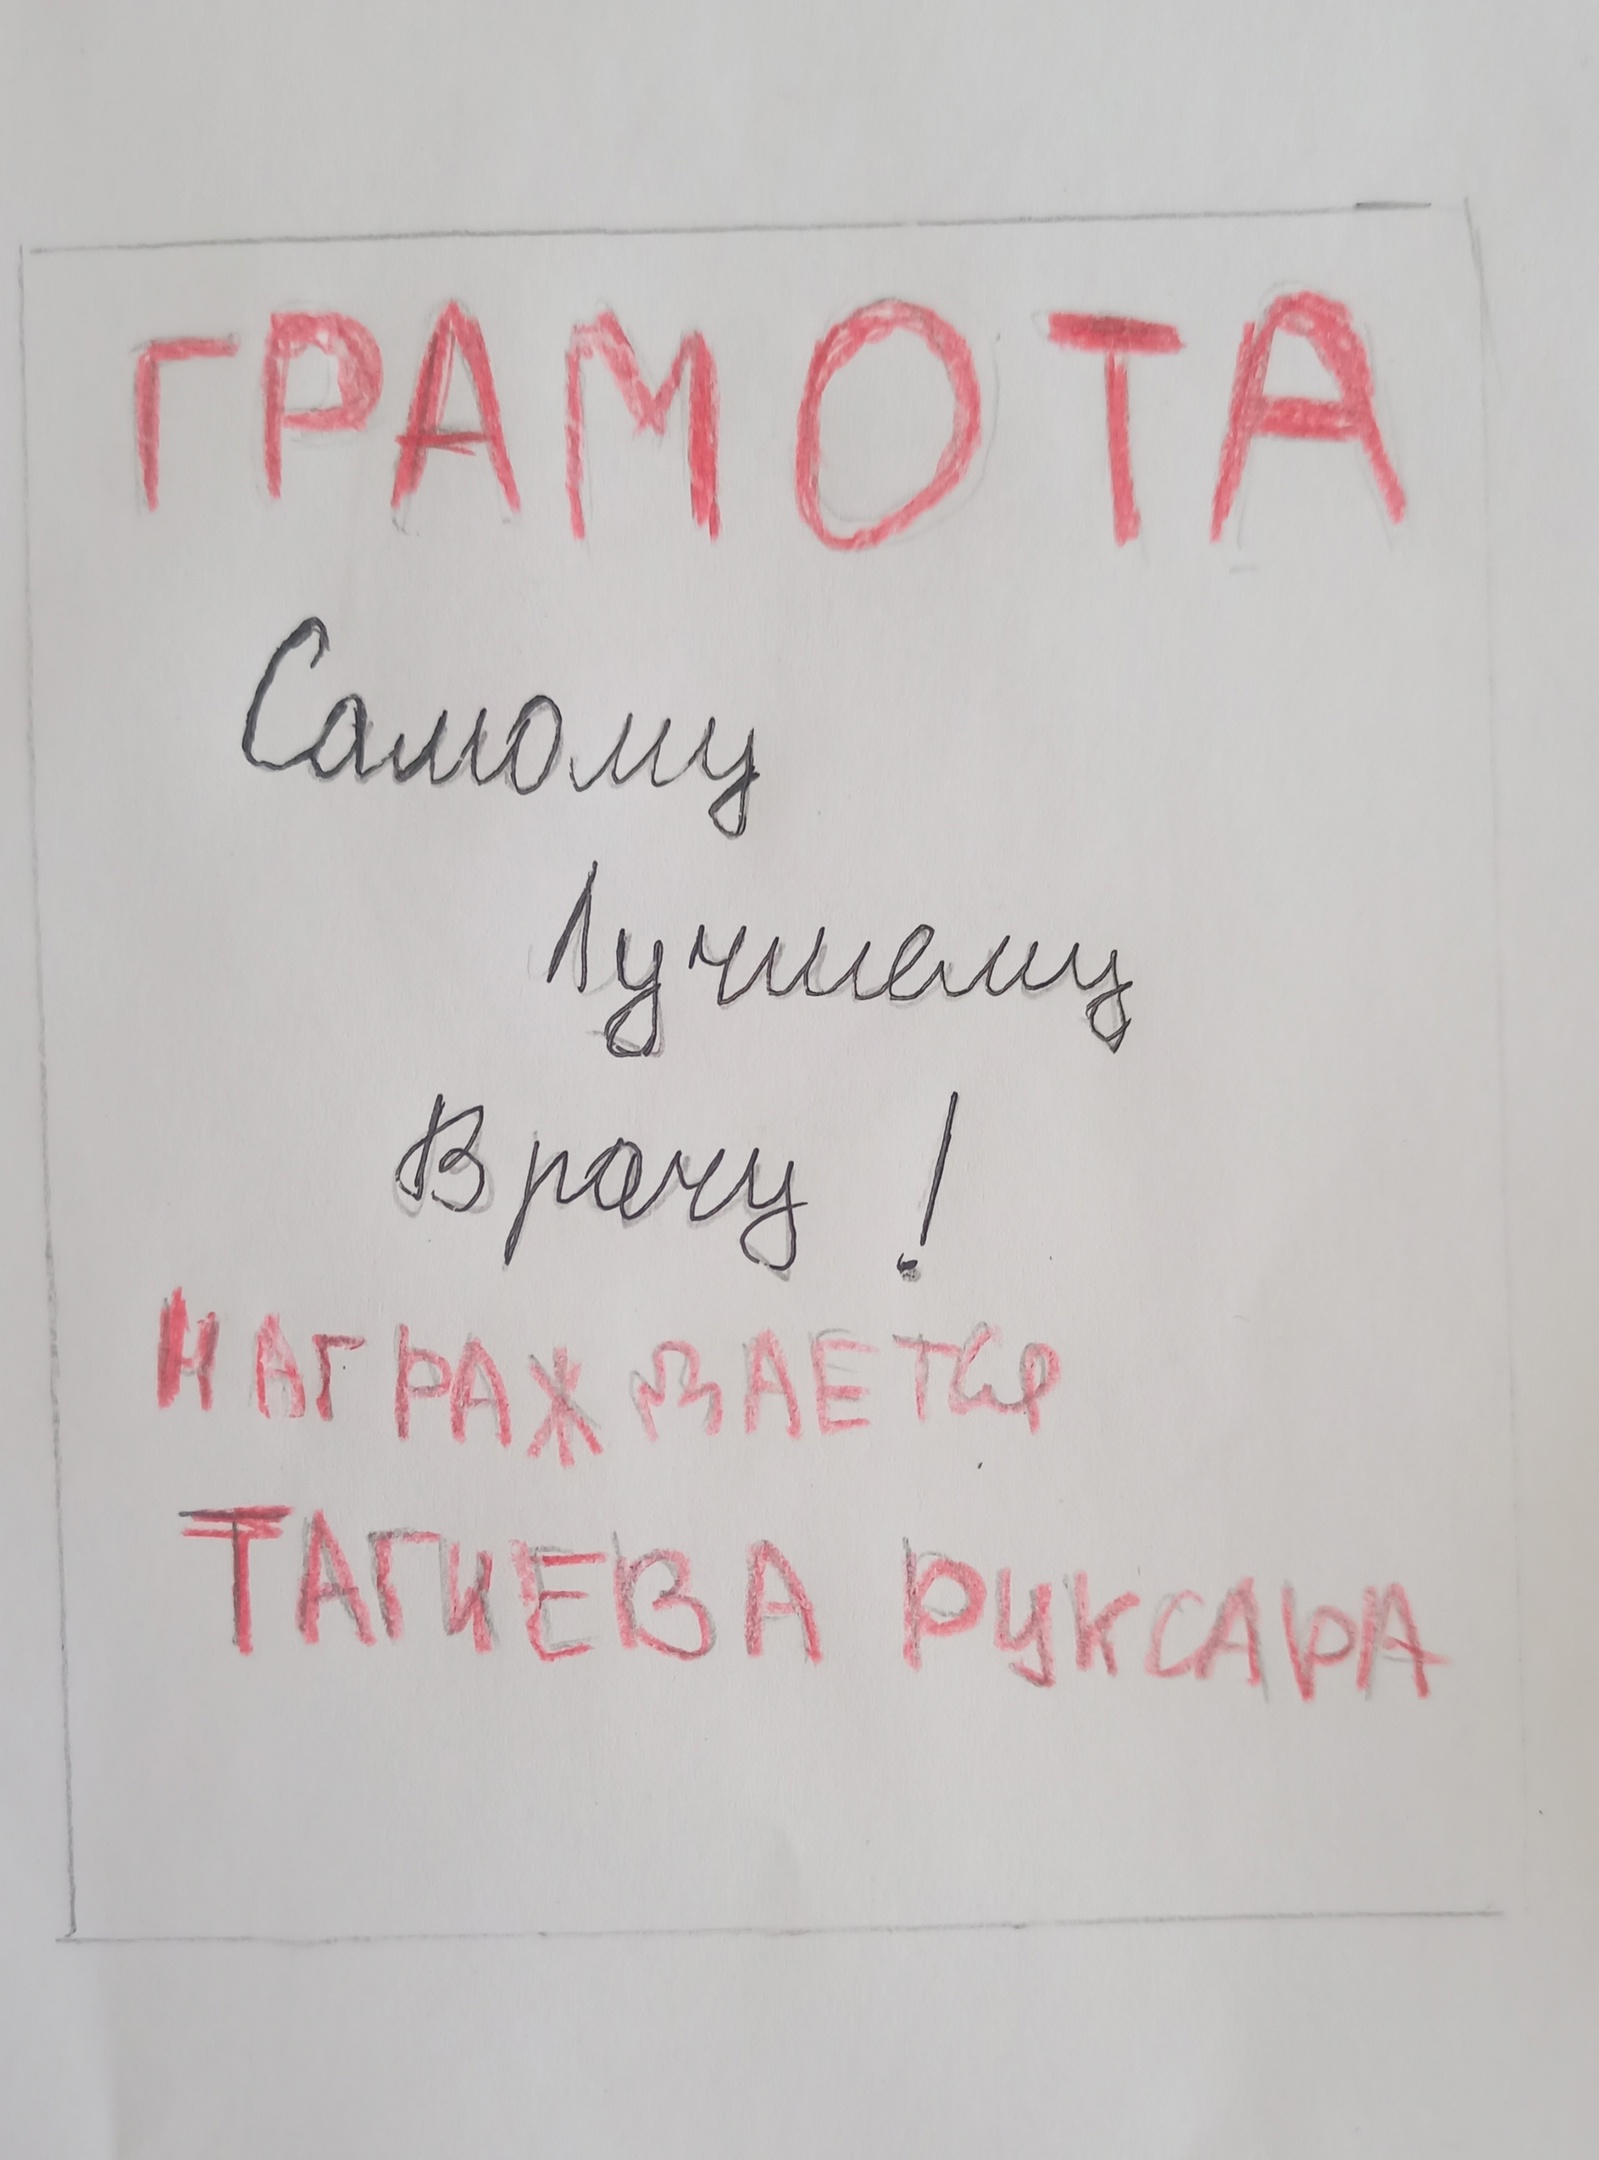 ГРАМОТА
Самому
Лучшему
Врачу!
НАГРАЖДАЕТСЯ
ТАГИЕВА РУКСАРА